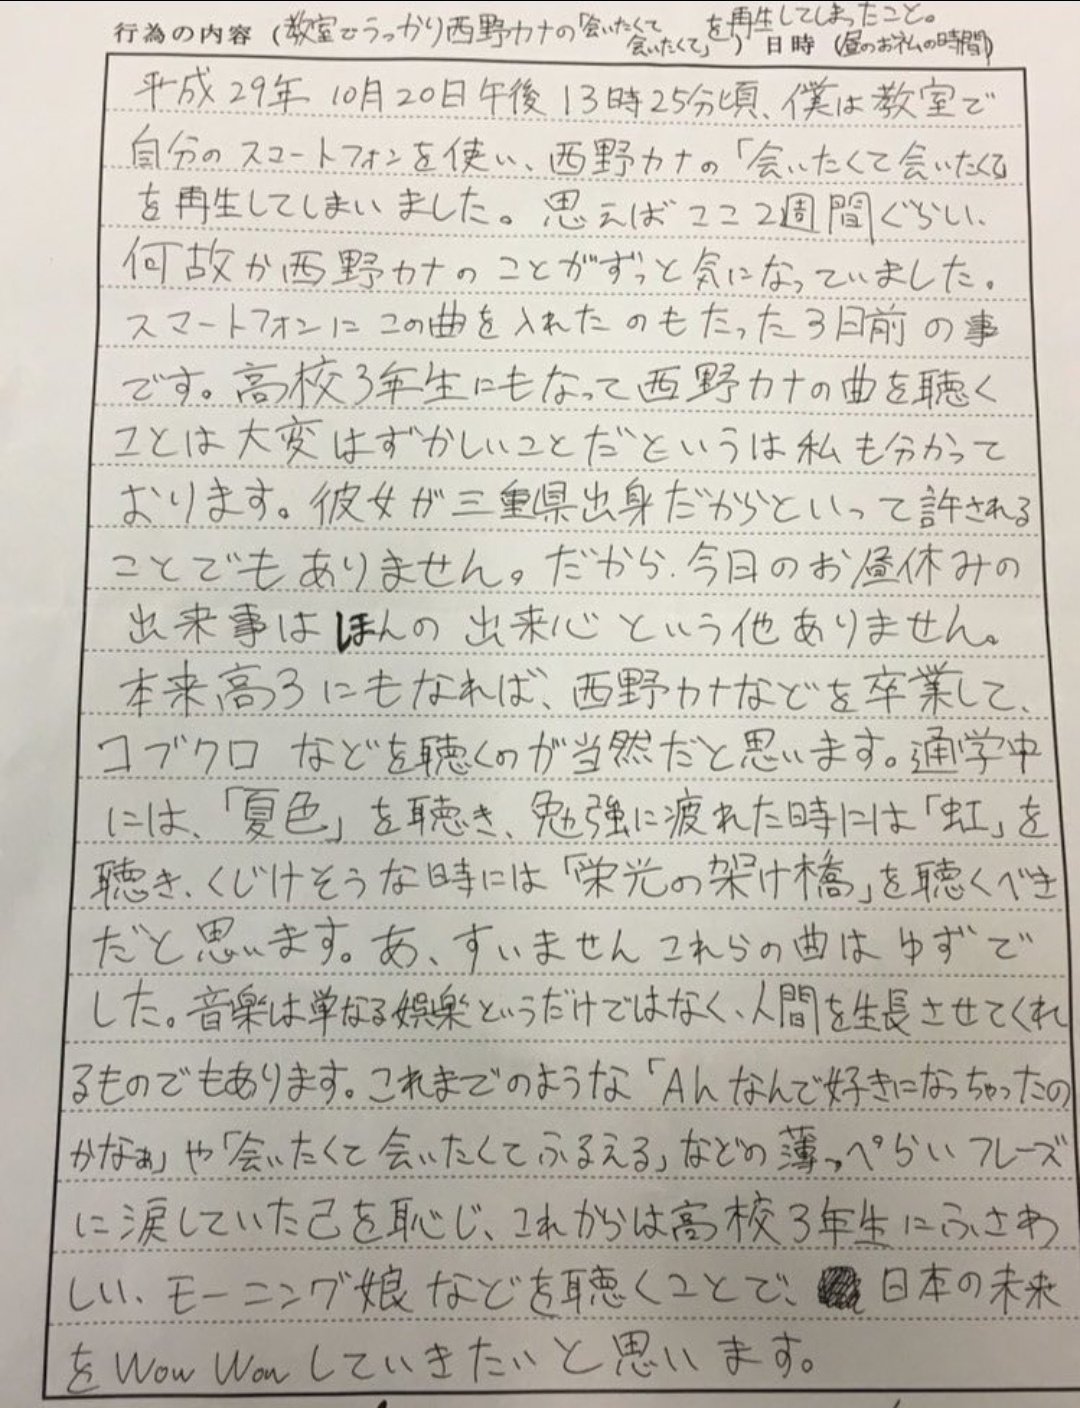 行為の内容(教室でうっかり西野カナの「会いたくて会いたくて」を再生してしまったこと。)日時(昼のお祈りの時間)
平成29年10月20日午後13時25分頃、僕は教室で
自分のスマートフォンを使い、西野カナの「会いたくて会いたくて」
を再生してしまいました。思えばここ2週間ぐらい、
何故か西野カナのことがずっと気になっていました。
スマートフォンにこの曲を入れたのもたった3日前の事
です。高校3年生にもなって西野カナの曲を聴く
ことは大変はずかしいことだというは私も分かって
おります。彼女が三重県出身だからといって許される
ことでもありません。だから、今日のお昼休みの
出来事はほんの出来心という他ありません。
本来高3にもなれば、西野カナなどを卒業して、
コブクロなどを聴くのが当然だと思います。通学中
には、「夏色」を聴き、勉強に疲れた時には「虹」を
聴き、くじけそうな時には「栄光の架け橋」を聴くべき
だと思います。あ、すいませんこれらの曲はゆずで
した。音楽は単なる娯楽というだけではなく、人間を生長させてくれ
るものでもあります。これまでのような「Ahなんで好きになっちゃったの
かなぁ」や「会いたくて会いたくてふるえる」などの薄っぺらいフレーズ
に涙していた己を恥じ、これからは高校3年生にふさわ
しい、モーニング娘などを聴くことで、日本の未来
をWow Wowしていきたいと思います。